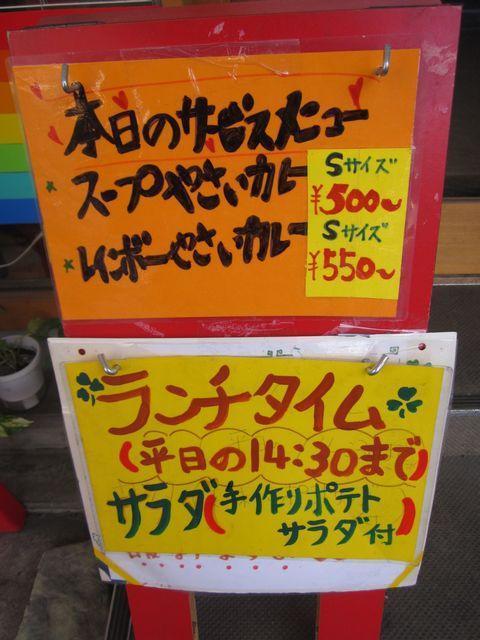 本日のサービスメニュー
スープやさいカレー
Sサイズ
¥500〜
レインボーやさいカレー
Sサイズ
¥550〜
ランチタイム
(平日の14:30まで)
サラダ(手作りポテト
サラダ付)